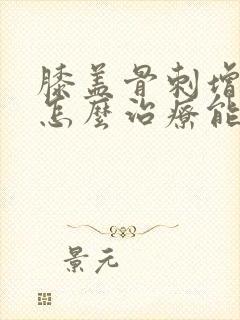 膝盖骨刺增
怎麼治療能
景元